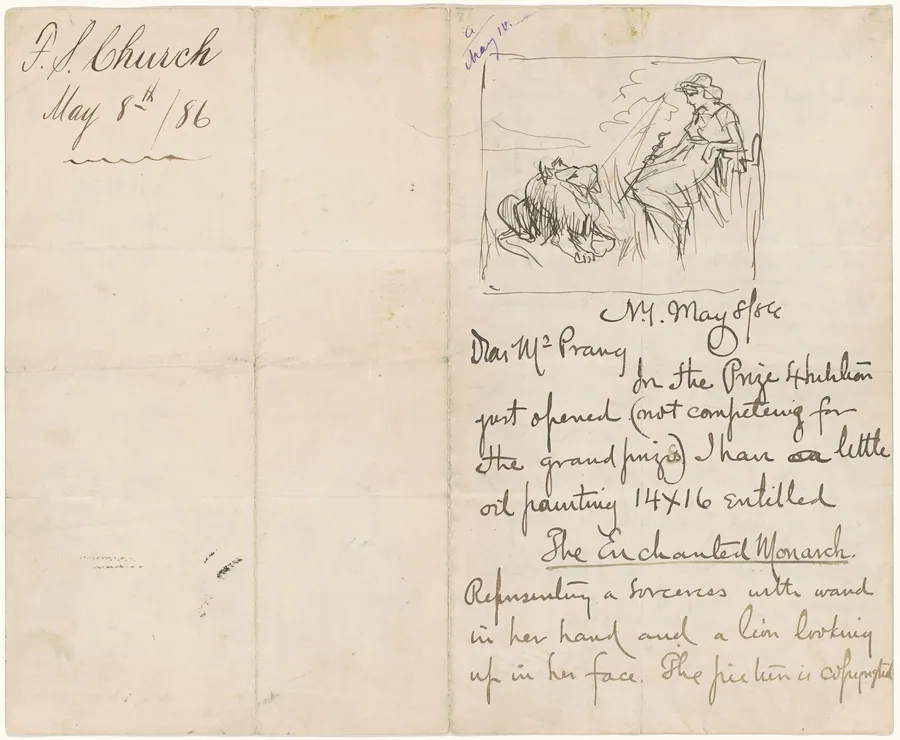 F. S. Church
May 8th /86
a
May 10.
N.Y. May 8/86
Dear Mr Prang
In the Prize Exhibition
just opened (not competeing for
the grand prizes) I have a little
oil painting 14X16 entitled
The Enchanted Monarch.
Representing a Sorceress with wand
in her hand and a lion looking
up in her face. The picture is copyrighted